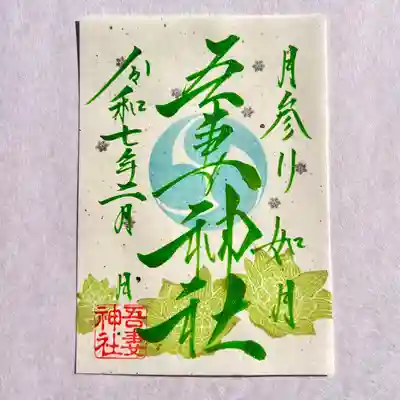 月参り 如月
吾妻神社
令和七年二月 月
吾妻
神社